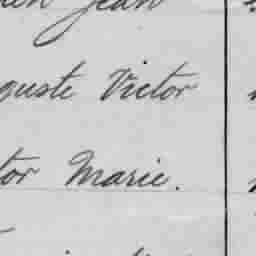 Jean
guste Victor
tor Marie.